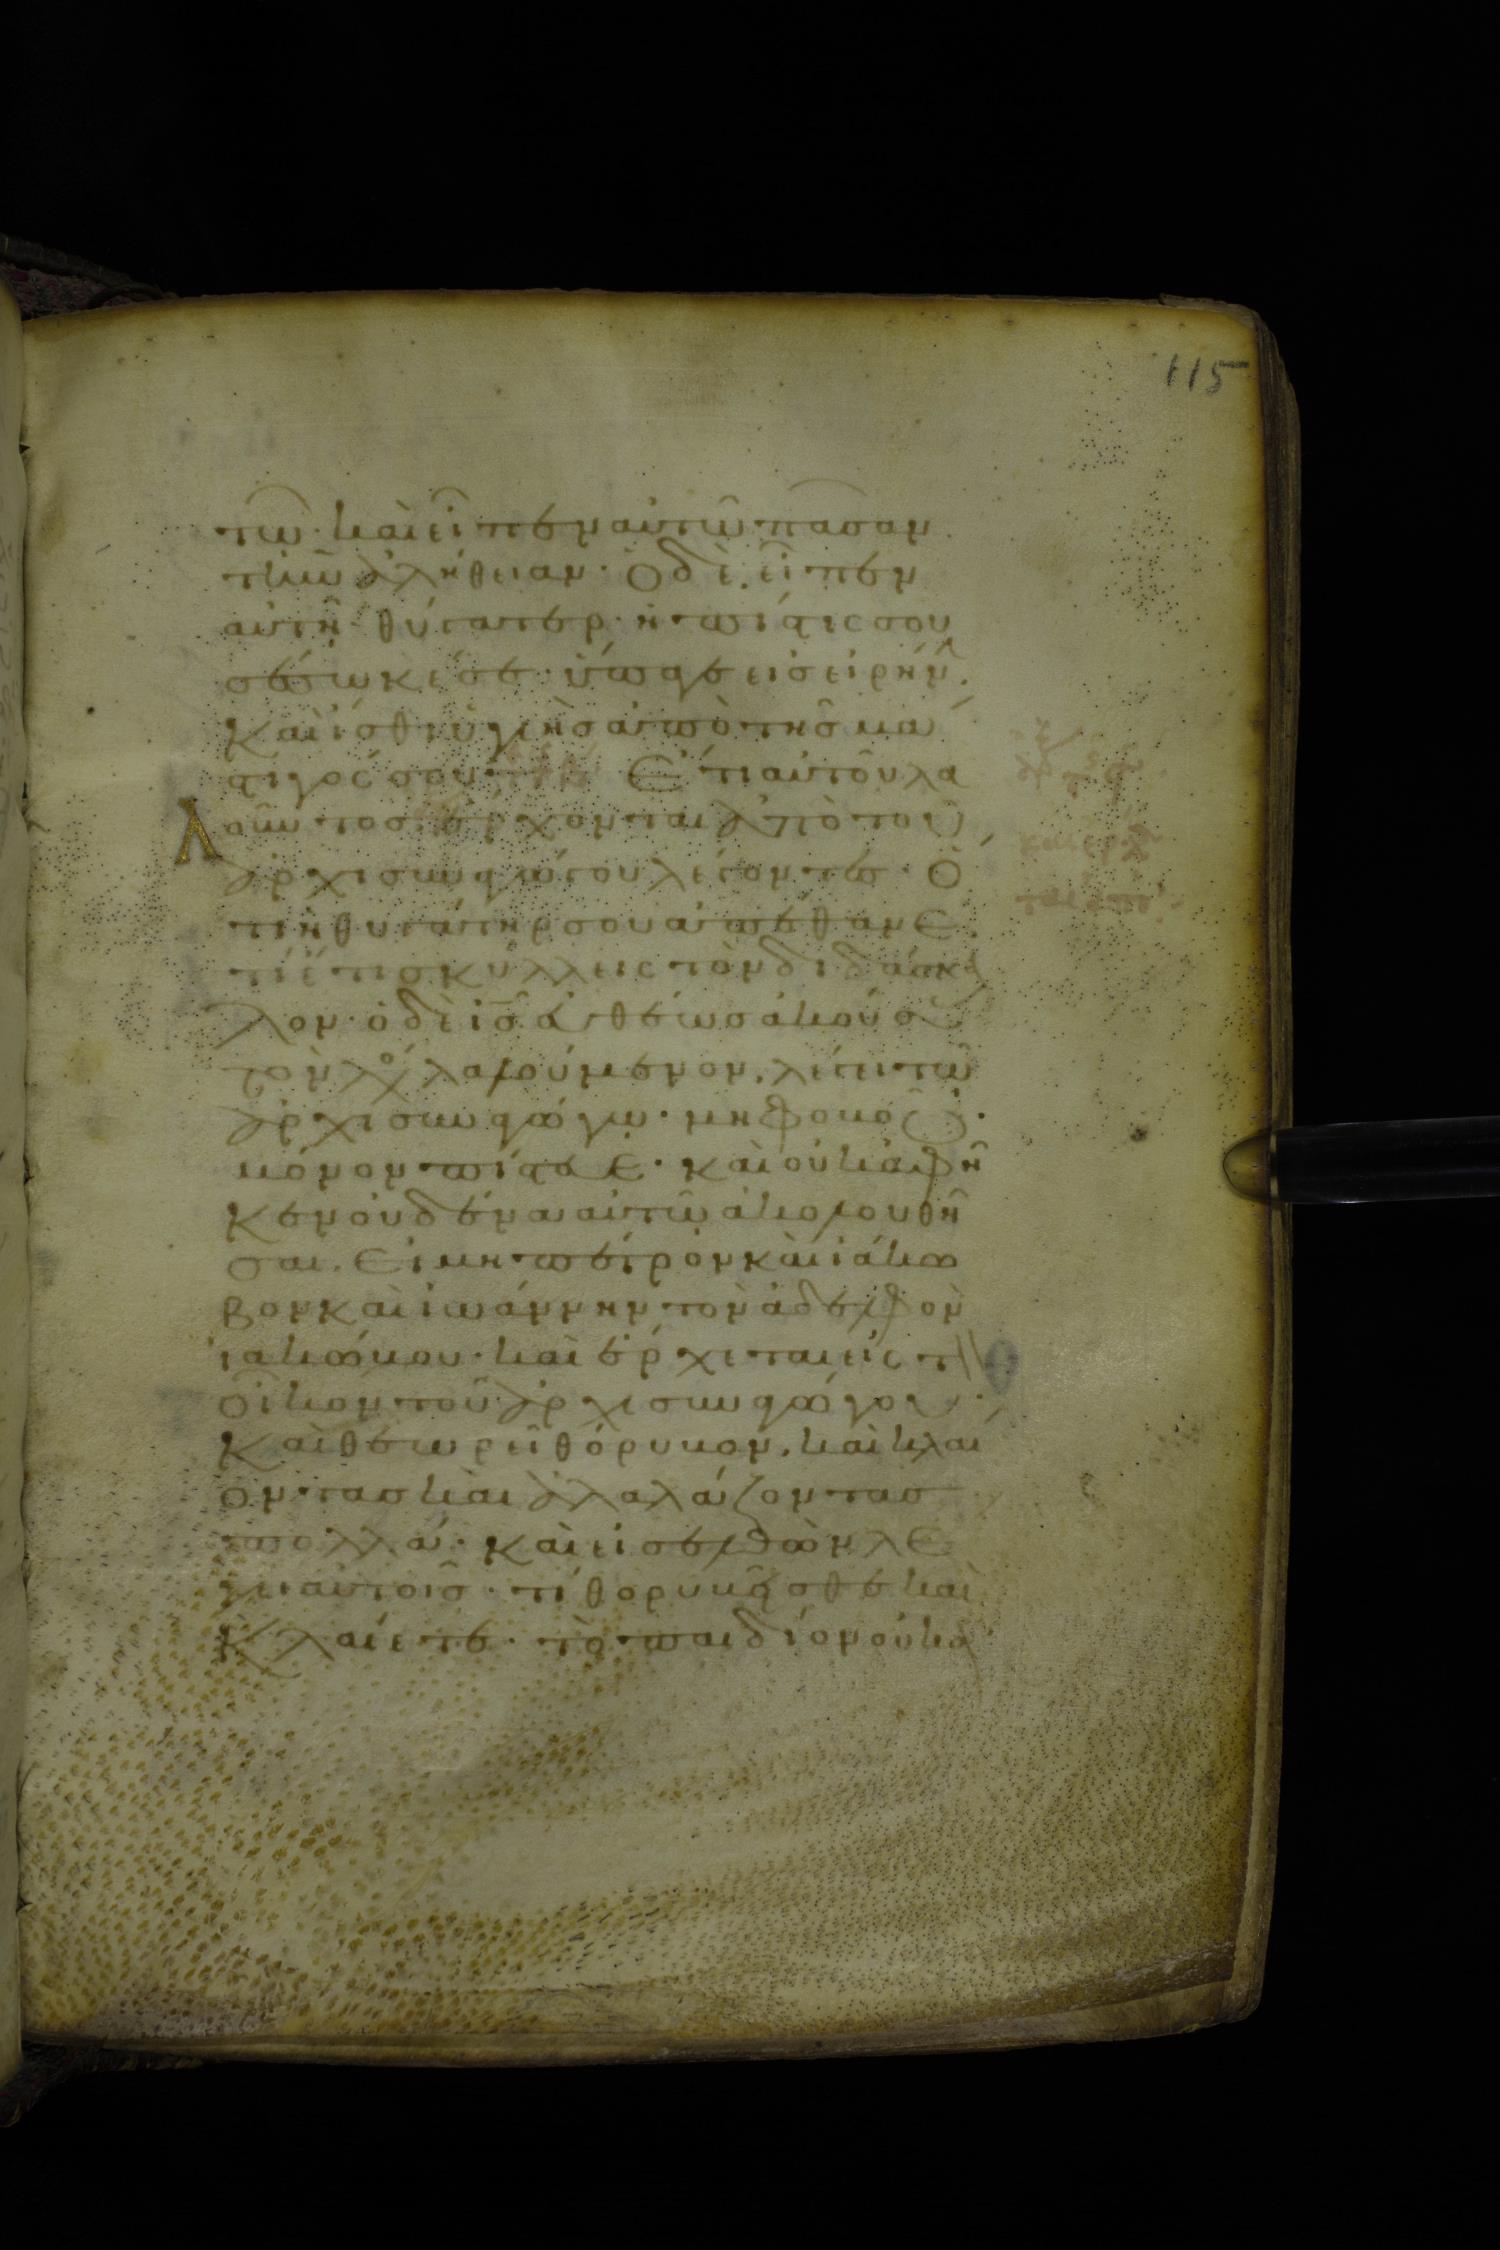 115
τῶ· καὶ εἶπεν αὐτῶ πᾶσαν
τὴν ἀλήθειαν· Ὁ δὲ εἶπεν
αὐτῆ· θύγατερ· ἡ πίστις σου
σέσωκέ σε· ὕπαγε εἰς εἰρήν
Καὶ ἴσθι ὑγιὴς ἀπὸ τῆς μά
στιγός σου· Ἔτι αὐτοῦ λα
λοῦντος· ἔρχονται ἀπὸ τοῦ
ἀρχισυναγώγου λέγοντες· Ὅ
τι ἡ θυγάτηρ σου ἀπέθανε
τί ἔτι σκύλλεις τὸν διδάσκα
λον· ὁ δὲ ις εὐθέως ἀκούσας
τὸν λόγον λαλούμενον, λέγει τῶ
ἀρχισυναγώγω· μὴ φοβοῦ·
μόνον πίστευε· Καὶ οὐκ ἀφῆ
κεν οὐδένα αὐτῶ ἀκολουθῆ
σαι. Εἰ μὴ πέτρον καὶ ἰάκω
βον καὶ ἰωάννην τὸν ἀδελφὸν
ἰακώβου· καὶ ἔρχεται εἰς τ
οἶκον τοῦ ἀρχισυναγώγου·
Καὶ θεωρεῖ θόρυβον, καὶ κλαί
οντας καὶ ἀλαλάζοντας
πολλά· Καὶ εἰσελθὼν λέ
γει αὐτοῖς· τί θορυβεῖσθε καὶ
κλαίετε· τὸ παιδίον οὐκ ἀ